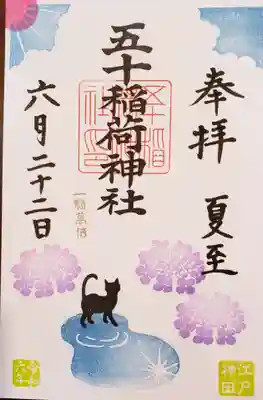 奉拝 夏至
五十稲荷神社
六月二十二日
江戸
神田
令和
六年